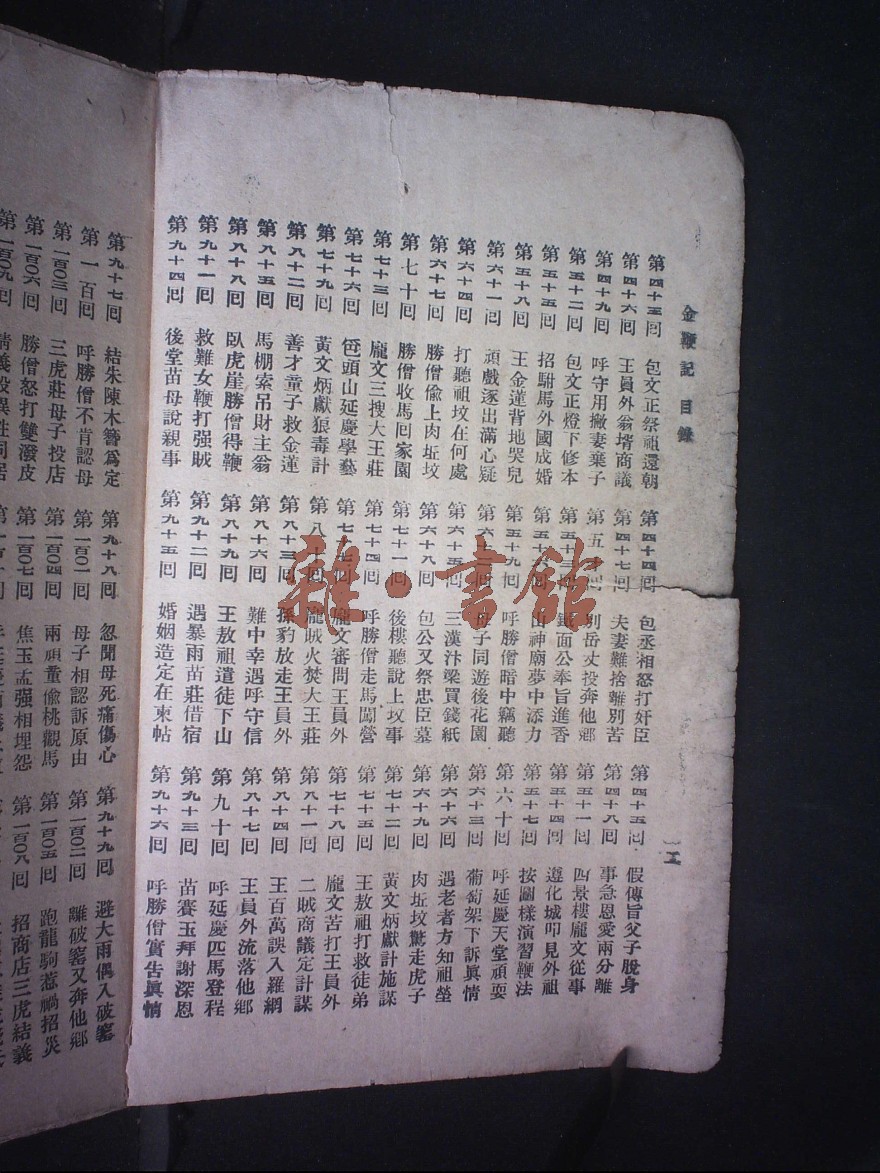 金鞭記 目錄
第四十三回 包文正祭祖還朝 第四十四回 包丞相怒打奸臣 第四十五回 假傳旨父子脫身
第四十六回 王員外翁壻商議 第四十七回 夫妻難捨離別苦 第四十八回 事急恩愛兩分離
第四十九回 呼守用撇妻棄子 第五十回 別岳丈投奔他鄉 第五十一回 四景樓龐文從事
第五十二回 包文正燈下修本 第五十三回 鐵面公奉旨進香 第五十四回 遵化城叩見外祖
第五十五回 招駙馬外國成婚 第五十六回 山神廟夢中添力 第五十七回 按圖樣演習鞭法
第五十八回 王金蓮背地哭兒 第五十九回 呼勝僧暗中竊聽 第六十回 呼延慶天堂頑耍
第六十一回 頑戲逐出滿心疑 第六十二回 母子同遊後花園 第六十三回 葡萄架下訴眞情
第六十四回 打聽祖坟在何處 第六十五回 三漢汴梁買錢紙 第六十六回 遇老者方知祖塋
第六十七回 勝僧偷上肉坵坟 第六十八回 包公又祭忠臣墓 第六十九回 肉坵坟驚走虎子
第七十回 勝僧收馬回家園 第七十一回 後樓聽說上坟事 第七十二回 黃文炳獻計施謀
第七十三回 龐文三搜大王莊 第七十四回 呼勝僧走馬闖營 第七十五回 王敖祖打救徒弟
第七十六回 笹頭山延慶學藝 第七十七回 龐文審問王員外 第七十八回 龐文苦打王員外
第七十九回 黃文炳獻狼毒計 第八十回 龐賊火焚大王莊 第八十一回 二賊商議定計謀
第八十二回 善才童子救金蓮 第八十三回 孫豹放走王員外 第八十四回 王百萬誤入羅網
第八十五回 馬棚索吊財主翁 第八十六回 難中幸遇呼守信 第八十七回 王員外流落他鄉
第八十八回 臥虎崖勝僧得鞭 第八十九回 王敖祖遣徒下山 第九十回 呼延慶匹馬登程
第九十一回 救難女鞭打强賊 第九十二回 遇暴雨苗莊借宿 第九十三回 苗賽玉拜謝深恩
第九十四回 後堂苗母說親事 第九十五回 婚姻造定在柬帖 第九十六回 呼勝僧實告眞情
第九十七回 結朱陳木簪爲定 第九十八回 忽聞母死痛傷心 第九十九回 避大雨偶入破窰
第一百回 呼勝僧不肯認母 第一百0一回 母子相認訴原由 第一百0二回 離破窰又奔他鄉
第一百0三回 三虎莊母子投店 第一百0四回 兩頑童偷桃觀馬 第一百0五回 跑龍駒惹禍招災
第一百0六回 勝僧怒打雙潑皮 第一百0七回 焦玉孟强相埋怨 第一百0八回 招商店三虎結義
第一百0九回
雜·書館